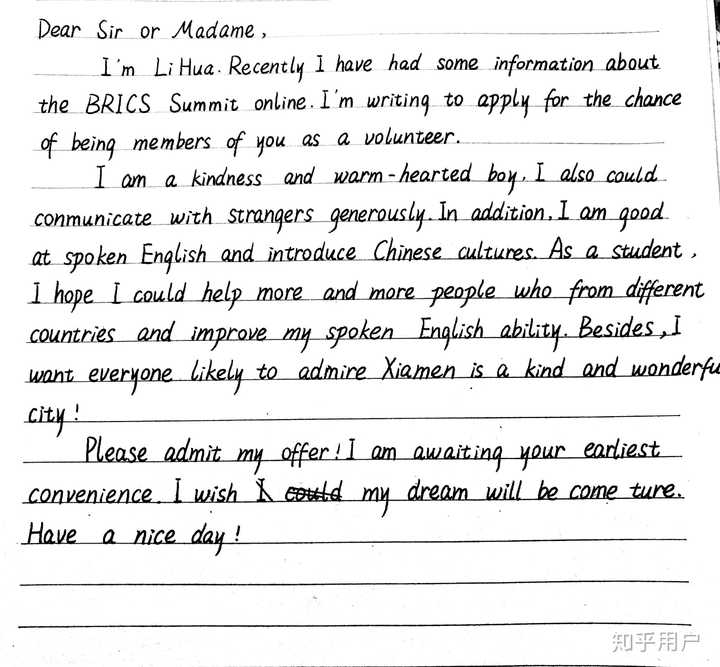 Dear Sir or Madame,
I'm Li Hua. Recently I have had some information about
the BRICS Summit online. I'm writing to apply for the chance
of being members of you as a volunteer.
I am a kindness and warm-hearted boy. I also could
conmunicate with strangers generously. In addition, I am good
at spoken English and introduce Chinese cultures. As a student,
I hope I could help more and more people who from different
countries and improve my spoken English ability. Besides, I
want everyone likely to admire Xiamen is a kind and wonderfu
city!
Please admit my offer! I am awaiting your earliest
convenience. I wish I could my dream will be come ture.
Have a nice day!
知乎用户